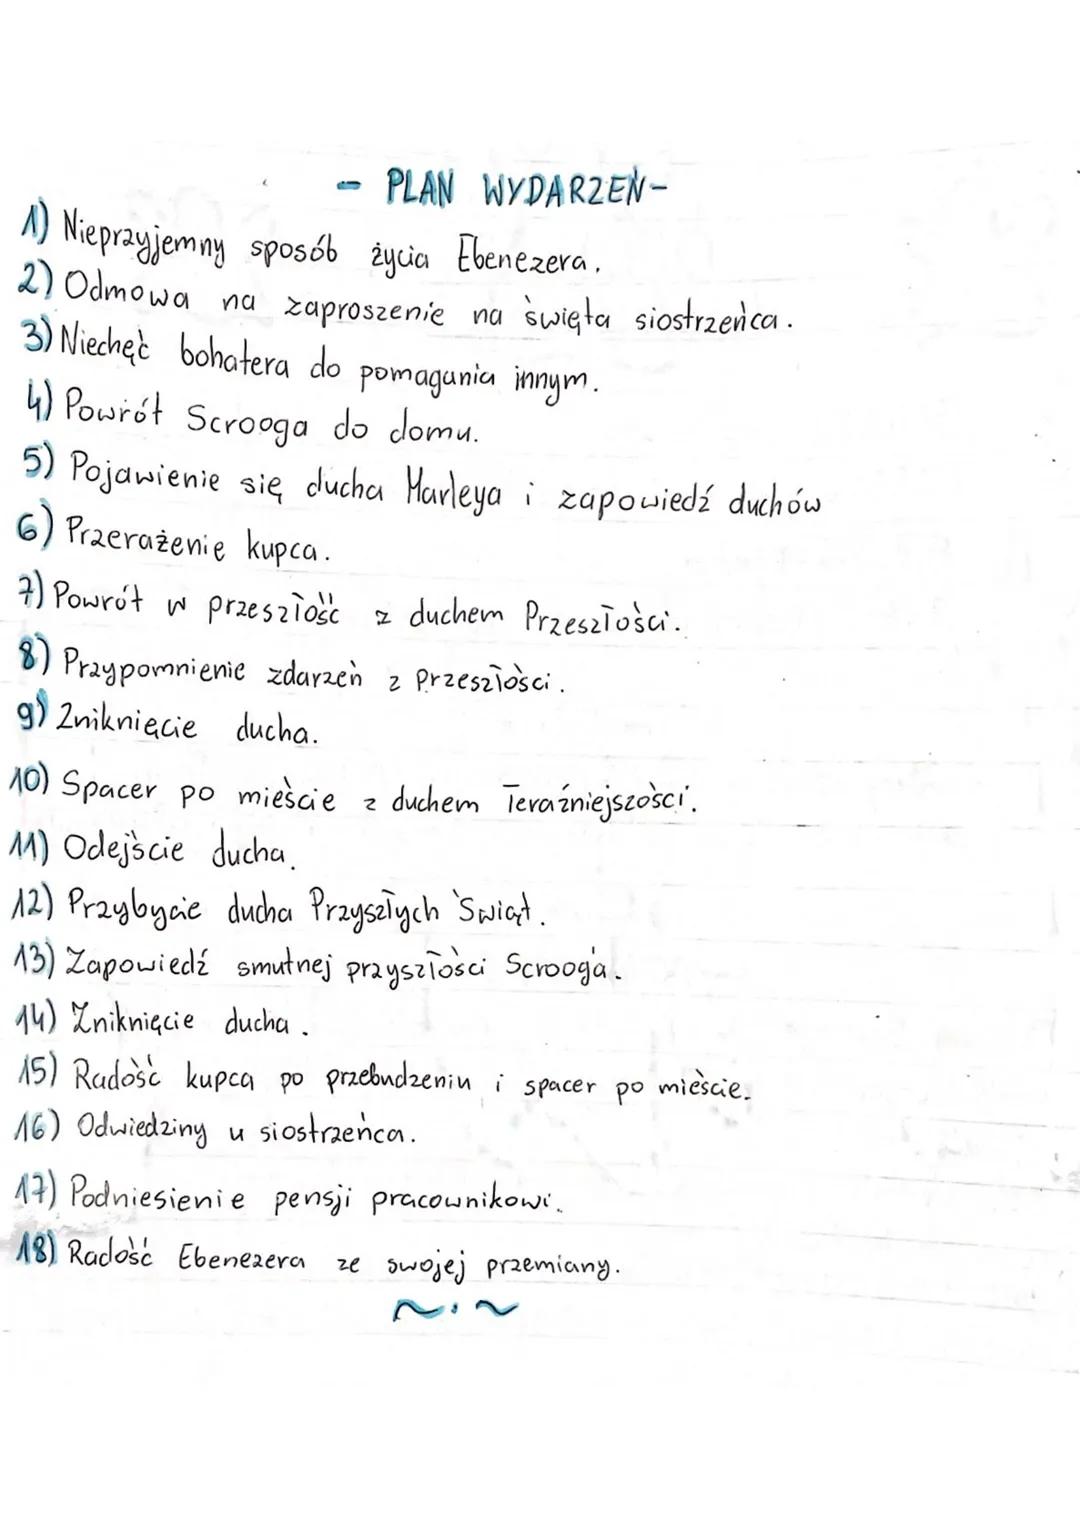 - PLAN WYDARZEŃ-
1) Nieprzyjemny sposób życia Ebenezera.
2) Odmowa na zaproszenie na święta siostrzeńca.
3) Niechęć bohatera do pomagania innym.
4) Powrót Scrooga do domu.
5) Pojawienie się ducha Marleya i zapowiedź duchów
6) Przerażenie kupca.
7) Powrót w przeszłość z duchem Przeszłości.
8) Przypomnienie zdarzeń z przeszłości.
9) Zniknięcie ducha.
10) Spacer po mieście z duchem Teraźniejszości.
11) Odejście ducha.
12) Przybycie ducha Przyszłych Świąt.
13) Zapowiedź smutnej przyszłości Scrooga.
14) Zniknięcie ducha.
15) Radość kupca po przebudzeniu i spacer po mieście.
16) Odwiedziny u siostrzeńca.
17) Podniesienie pensji pracownikowi.
18) Radość Ebenezera ze swojej przemiany.